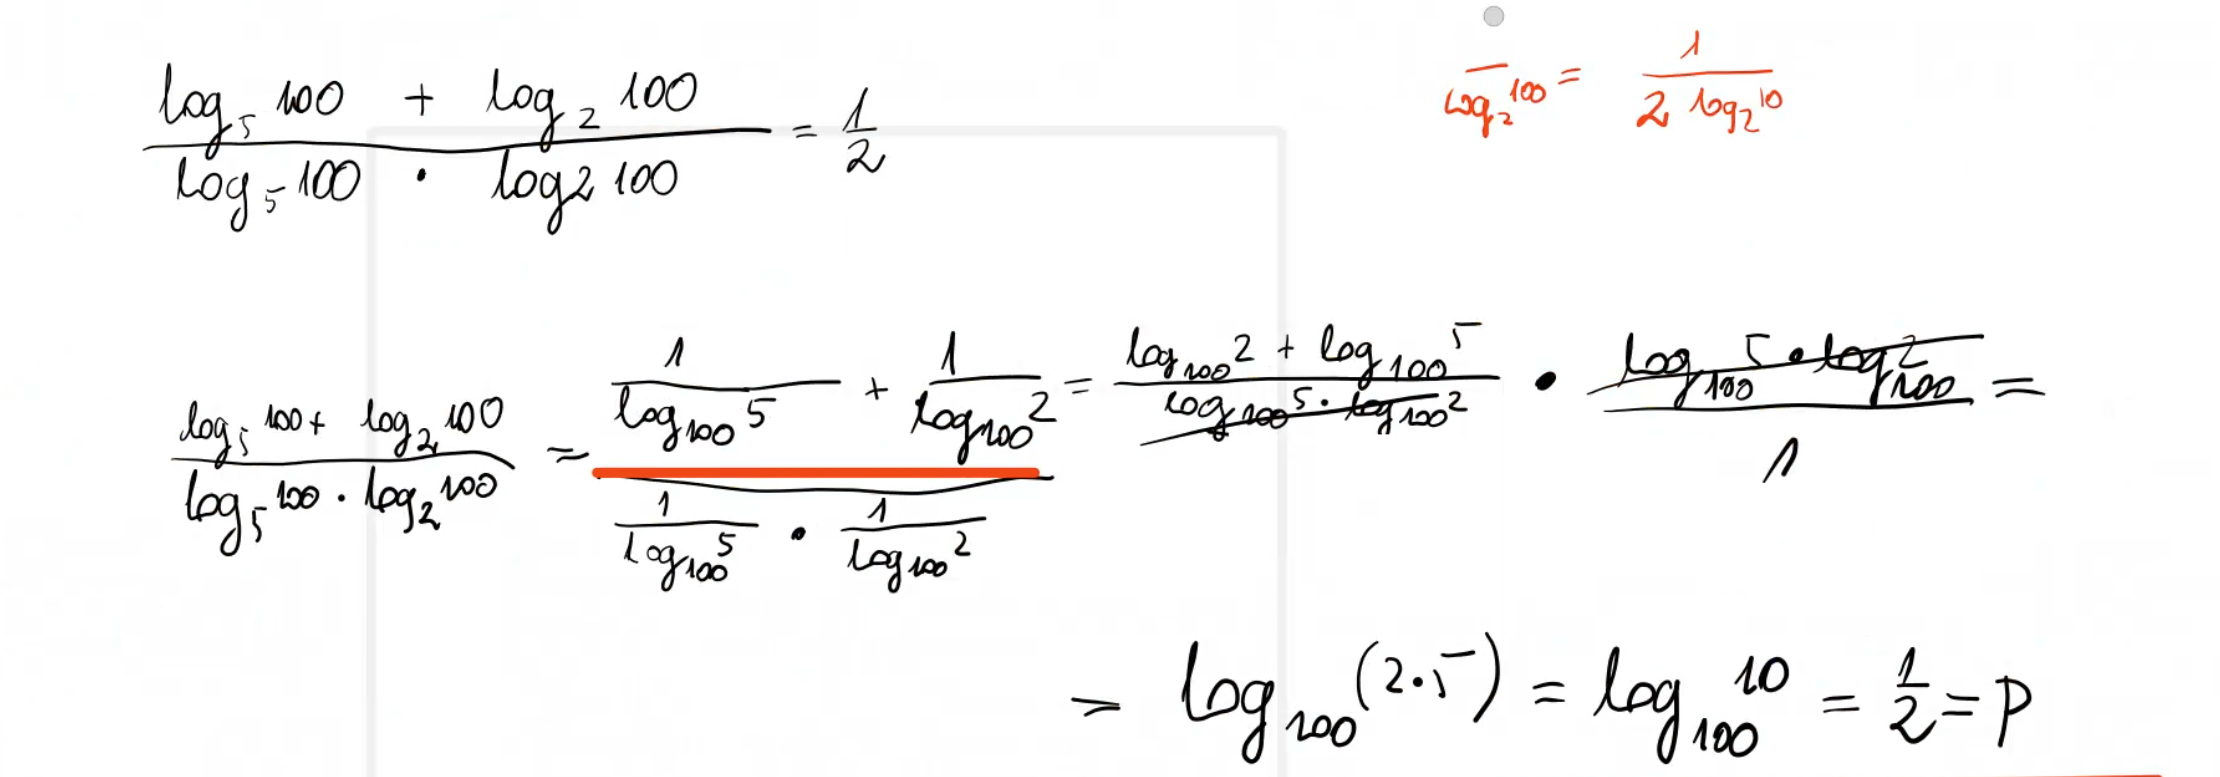 log₅ 100 + log₂ 100 / log₅ 100 · log2 100 = 1/2
log₂ 100 = 1 / 2 log₂ 10
log₅ 100 + log₂ 100 / log₅ 100 · log₂ 100 = (1 / log₁₀₀ 5 + 1 / log₁₀₀ 2) / (1 / log₁₀₀ 5 · 1 / log₁₀₀ 2) = log₁₀₀ 2 + log₁₀₀ 5 / log₁₀₀ 5 · log₁₀₀ 2 · log₁₀₀ 5 · log₁₀₀ 2 / 1 =
= log₁₀₀ (2·5) = log₁₀₀ 10 = 1/2 = P